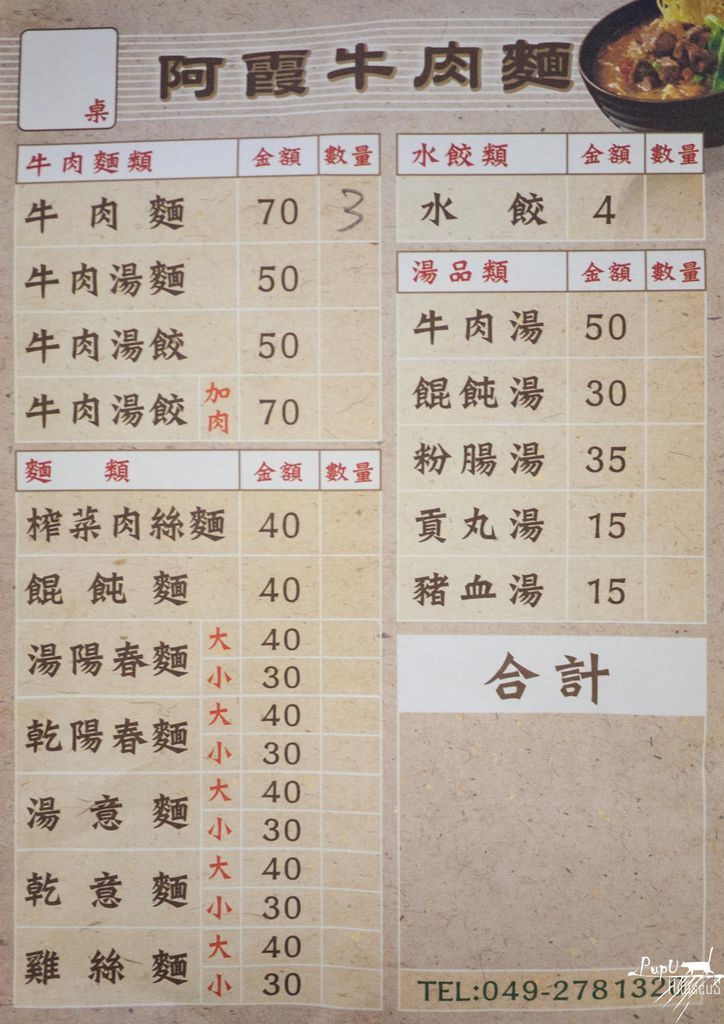 桌
阿霞牛肉麵
牛肉麵類 金額 數量
牛肉麵 70 3
牛肉湯麵 50
牛肉湯餃 50
牛肉湯餃 加肉 70
麵類 金額 數量
榨菜肉絲麵 40
餛飩麵 40
湯陽春麵 大 40
小 30
乾陽春麵 大 40
小 30
湯意麵 大 40
小 30
乾意麵 大 40
小 30
雞絲麵 大 40
小 30
水餃類 金額 數量
水餃 4
湯品類 金額 數量
牛肉湯 50
餛飩湯 30
粉腸湯 35
貢丸湯 15
豬血湯 15
合計
TEL:049-278132
PupU